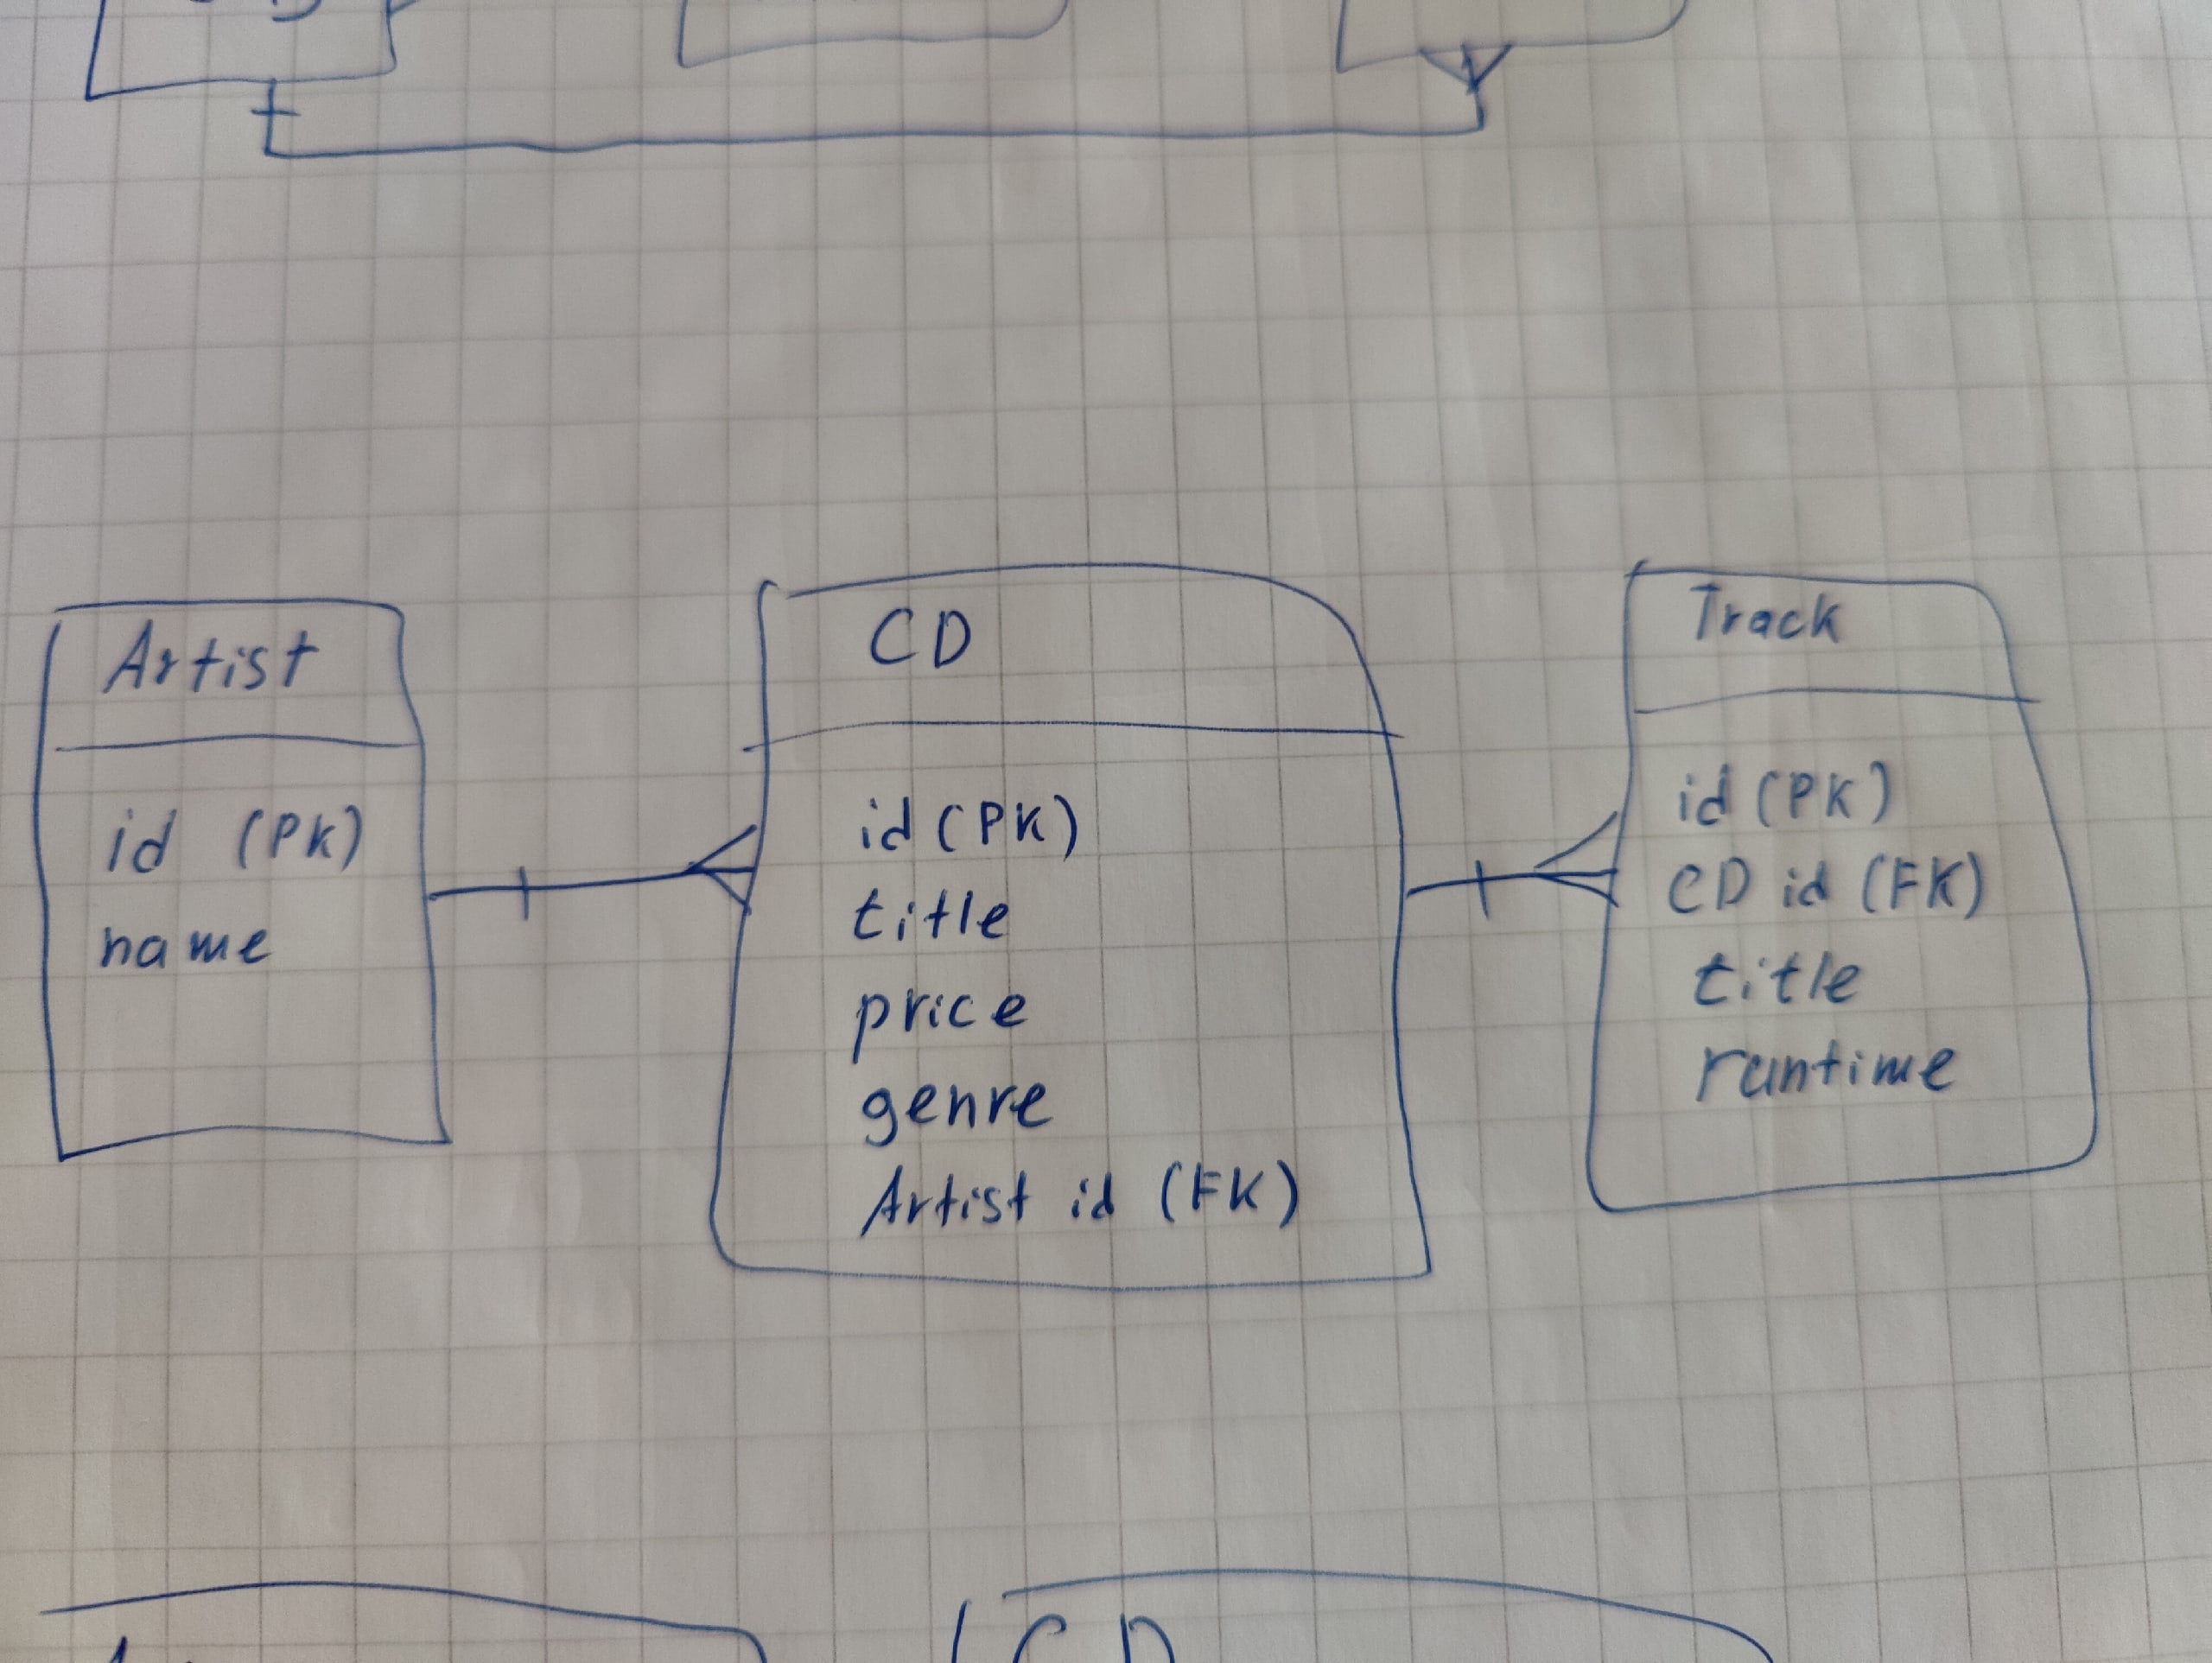 Artist
id (PK)
name
CD
id (PK)
title
price
genre
Artist id (FK)
Track
id (PK)
CD id (FK)
title
runtime
CD